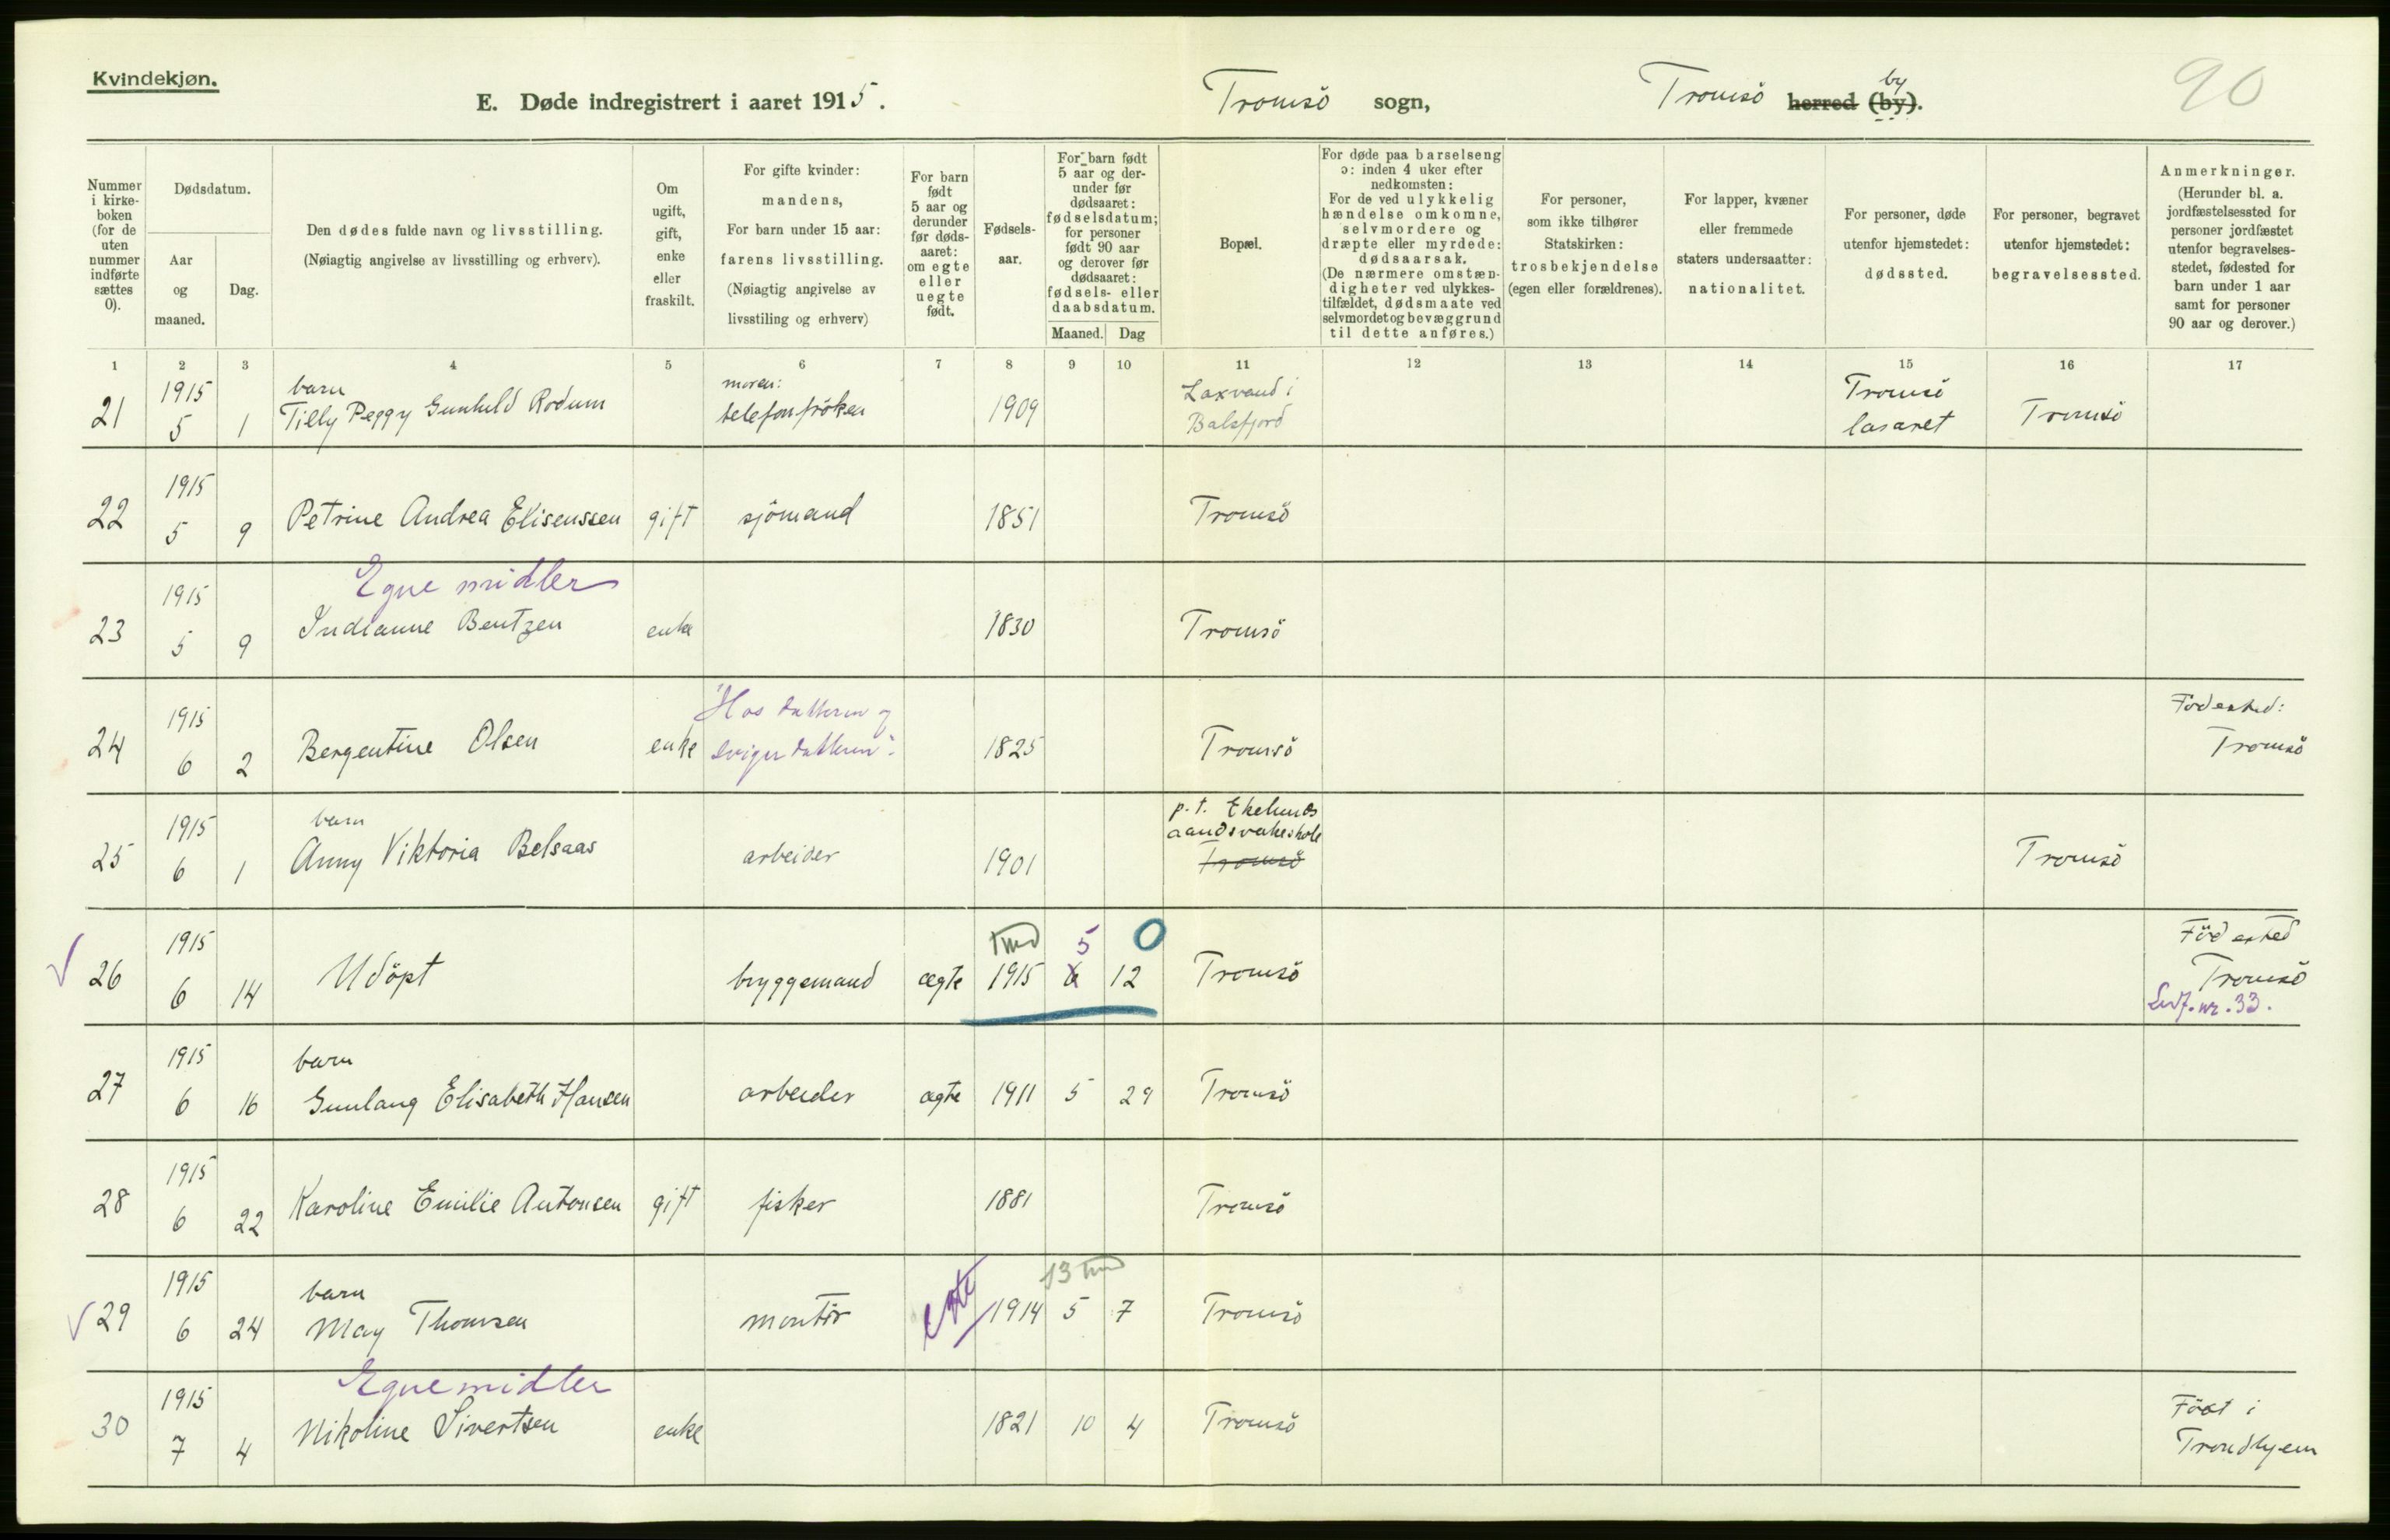 Kvindekjøn.
E. Døde indregistrert i aaret 1915.
Tromsö sogn,
Tromsö herred (by). by
90
Nummer i kirkeboken (for de uten nummer indførte sættes 0).
Dødsdatum.
Aar og maaned.
Dag.
Den dødes fulde navn og livsstilling.
(Nøiagtig angivelse av livsstilling og erhverv).
Om ugift, gift, enke eller fraskilt.
For gifte kvinder: mandens,
For barn under 15 aar: farens livsstilling.
(Nøiagtig angivelse av livsstiling og erhverv)
For barn født 5 aar og derunder før dødsaaret: om egte eller uegte født.
Fødselsaar.
For barn født 5 aar og derunder før dødsaaret: fødselsdatum; for personer født 90 aar og derover før dødsaaret: fødsels- eller daabsdatum.
Maaned. Dag
Bopæl.
For døde paa barselseng ɔ: inden 4 uker efter nedkomsten:
For de ved ulykkelig hændelse omkomne, selvmordere og dræpte eller myrdede: dødsaarsak.
(De nærmere omstændigheter ved ulykkestilfældet, dødsmaate ved selvmordet og bevæggrund til dette anføres.)
For personer, som ikke tilhører Statskirken: trosbekjendelse (egen eller forældrenes).
For lapper, kvæner eller fremmede staters undersaatter: nationalitet.
For personer, døde utenfor hjemstedet: dødssted.
For personer, begravet utenfor hjemstedet: begravelsessted.
Anmerkninger.
(Herunder bl. a. jordfæstelsessted for personer jordfæstet utenfor begravelsesstedet, fødested for barn under 1 aar samt for personer 90 aar og derover.)
1 2 3 4 5 6 7 8 9 10 11 12 13 14 15 16 17
21 1915 5 1 barn Tilly Peggy Gunhild Rodum moren: telefonfröken 1909 Laxvand i Balsfjord Tromsö lasaret Tromsö
22 1915 5 9 Petrine Andrea Elisenssen gift sjömand 1851 Tromsö
Egne midler
23 1915 5 9 Indianne Bentzen enke 1830 Tromsö
24 1915 6 2 Bergentine Olsen enke "Hos datteren og svigerdatteren". 1825 Tromsö Födested: Tromsö
25 1915 6 1 barn Anny Viktoria Belsaas arbeider 1901 p.t. Ekelunds aandsvakeskole Tromsö Tromsö
1 md 5 0
26 1915 6 14 Udöpt bryggemand ægte 1915 6 12 Tromsö Födested Tromsö
Levf. nr. 33.
27 1915 6 16 barn Gunlaug Elisabeth Hansen arbeider ægte 1911 5 29 Tromsö
28 1915 6 22 Karoline Emilie Antonsen gift fisker 1881 Tromsö
13 md
29 1915 6 24 barn May Thomsen montör egte 1914 5 7 Tromsö
Egne midler
30 1915 7 4 Nikoline Sivertsen enke 1821 10 4 Tromsö Födt i Trondhjem